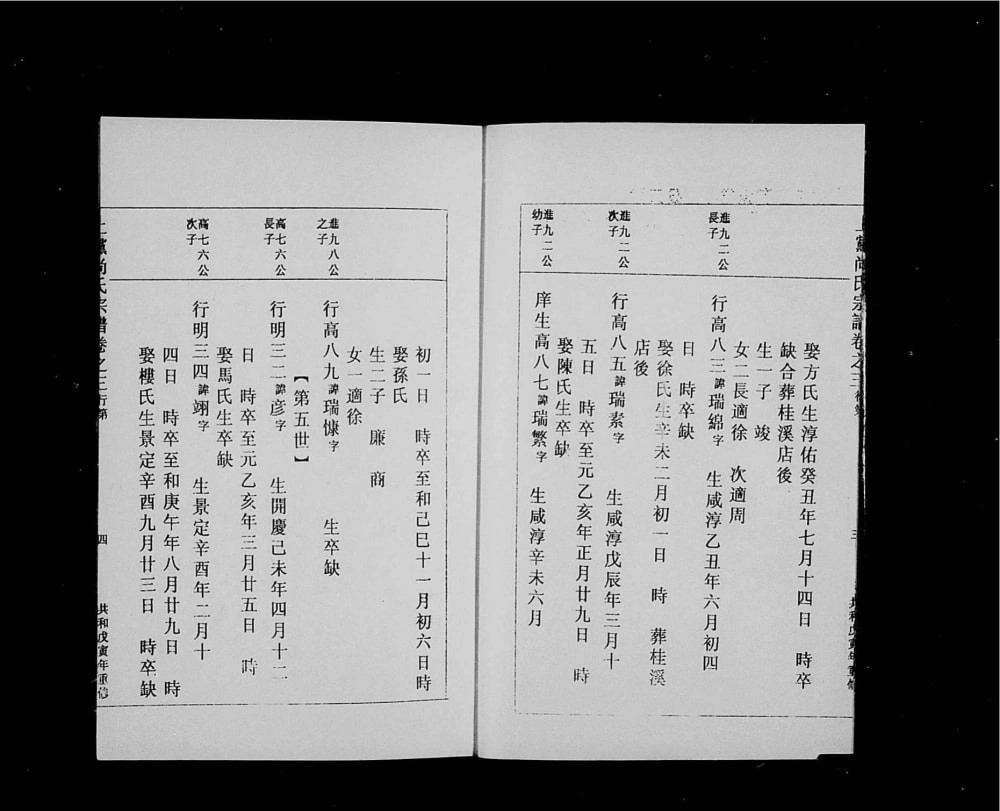 黨尚氏宗譜卷之三
三
共和戊寅年重修
娶方氏生淳佑癸丑年七月十四日 時卒
缺合葬桂溪店後
生一子 竣
女二長適徐 次適周
進九二公
長子
行高八三諱瑞綿字 生咸淳乙丑年六月初四
日 時卒缺
娶徐氏生辛未二月初一日 時 葬桂溪
店後
進九二公
次子
行高八五諱瑞素字 生咸淳戊辰年三月十
五日 時卒至元乙亥年正月廿九日 時
娶陳氏生卒缺
進九二公
幼子
庠生高八七諱瑞繁字 生咸淳辛未六月
初一日 時卒至和己巳十一月初六日時
娶孫氏
生二子 廉 商
女一適徐
進九八公
之子
行高八九諱瑞慷字 生卒缺
【第五世】
高七六公
長子
行明三二諱彦字 生開慶己未年四月十二
日 時卒至元乙亥年三月廿五日 時
娶馬氏生卒缺
高七六公
次子
行明三四諱翊字 生景定辛酉年二月十
四日 時卒至和庚午年八月廿九日 時
娶樓氏生景定辛酉九月廿三日 時卒缺
上黨尚氏宗譜卷之三行第
四
共和戊寅年重修